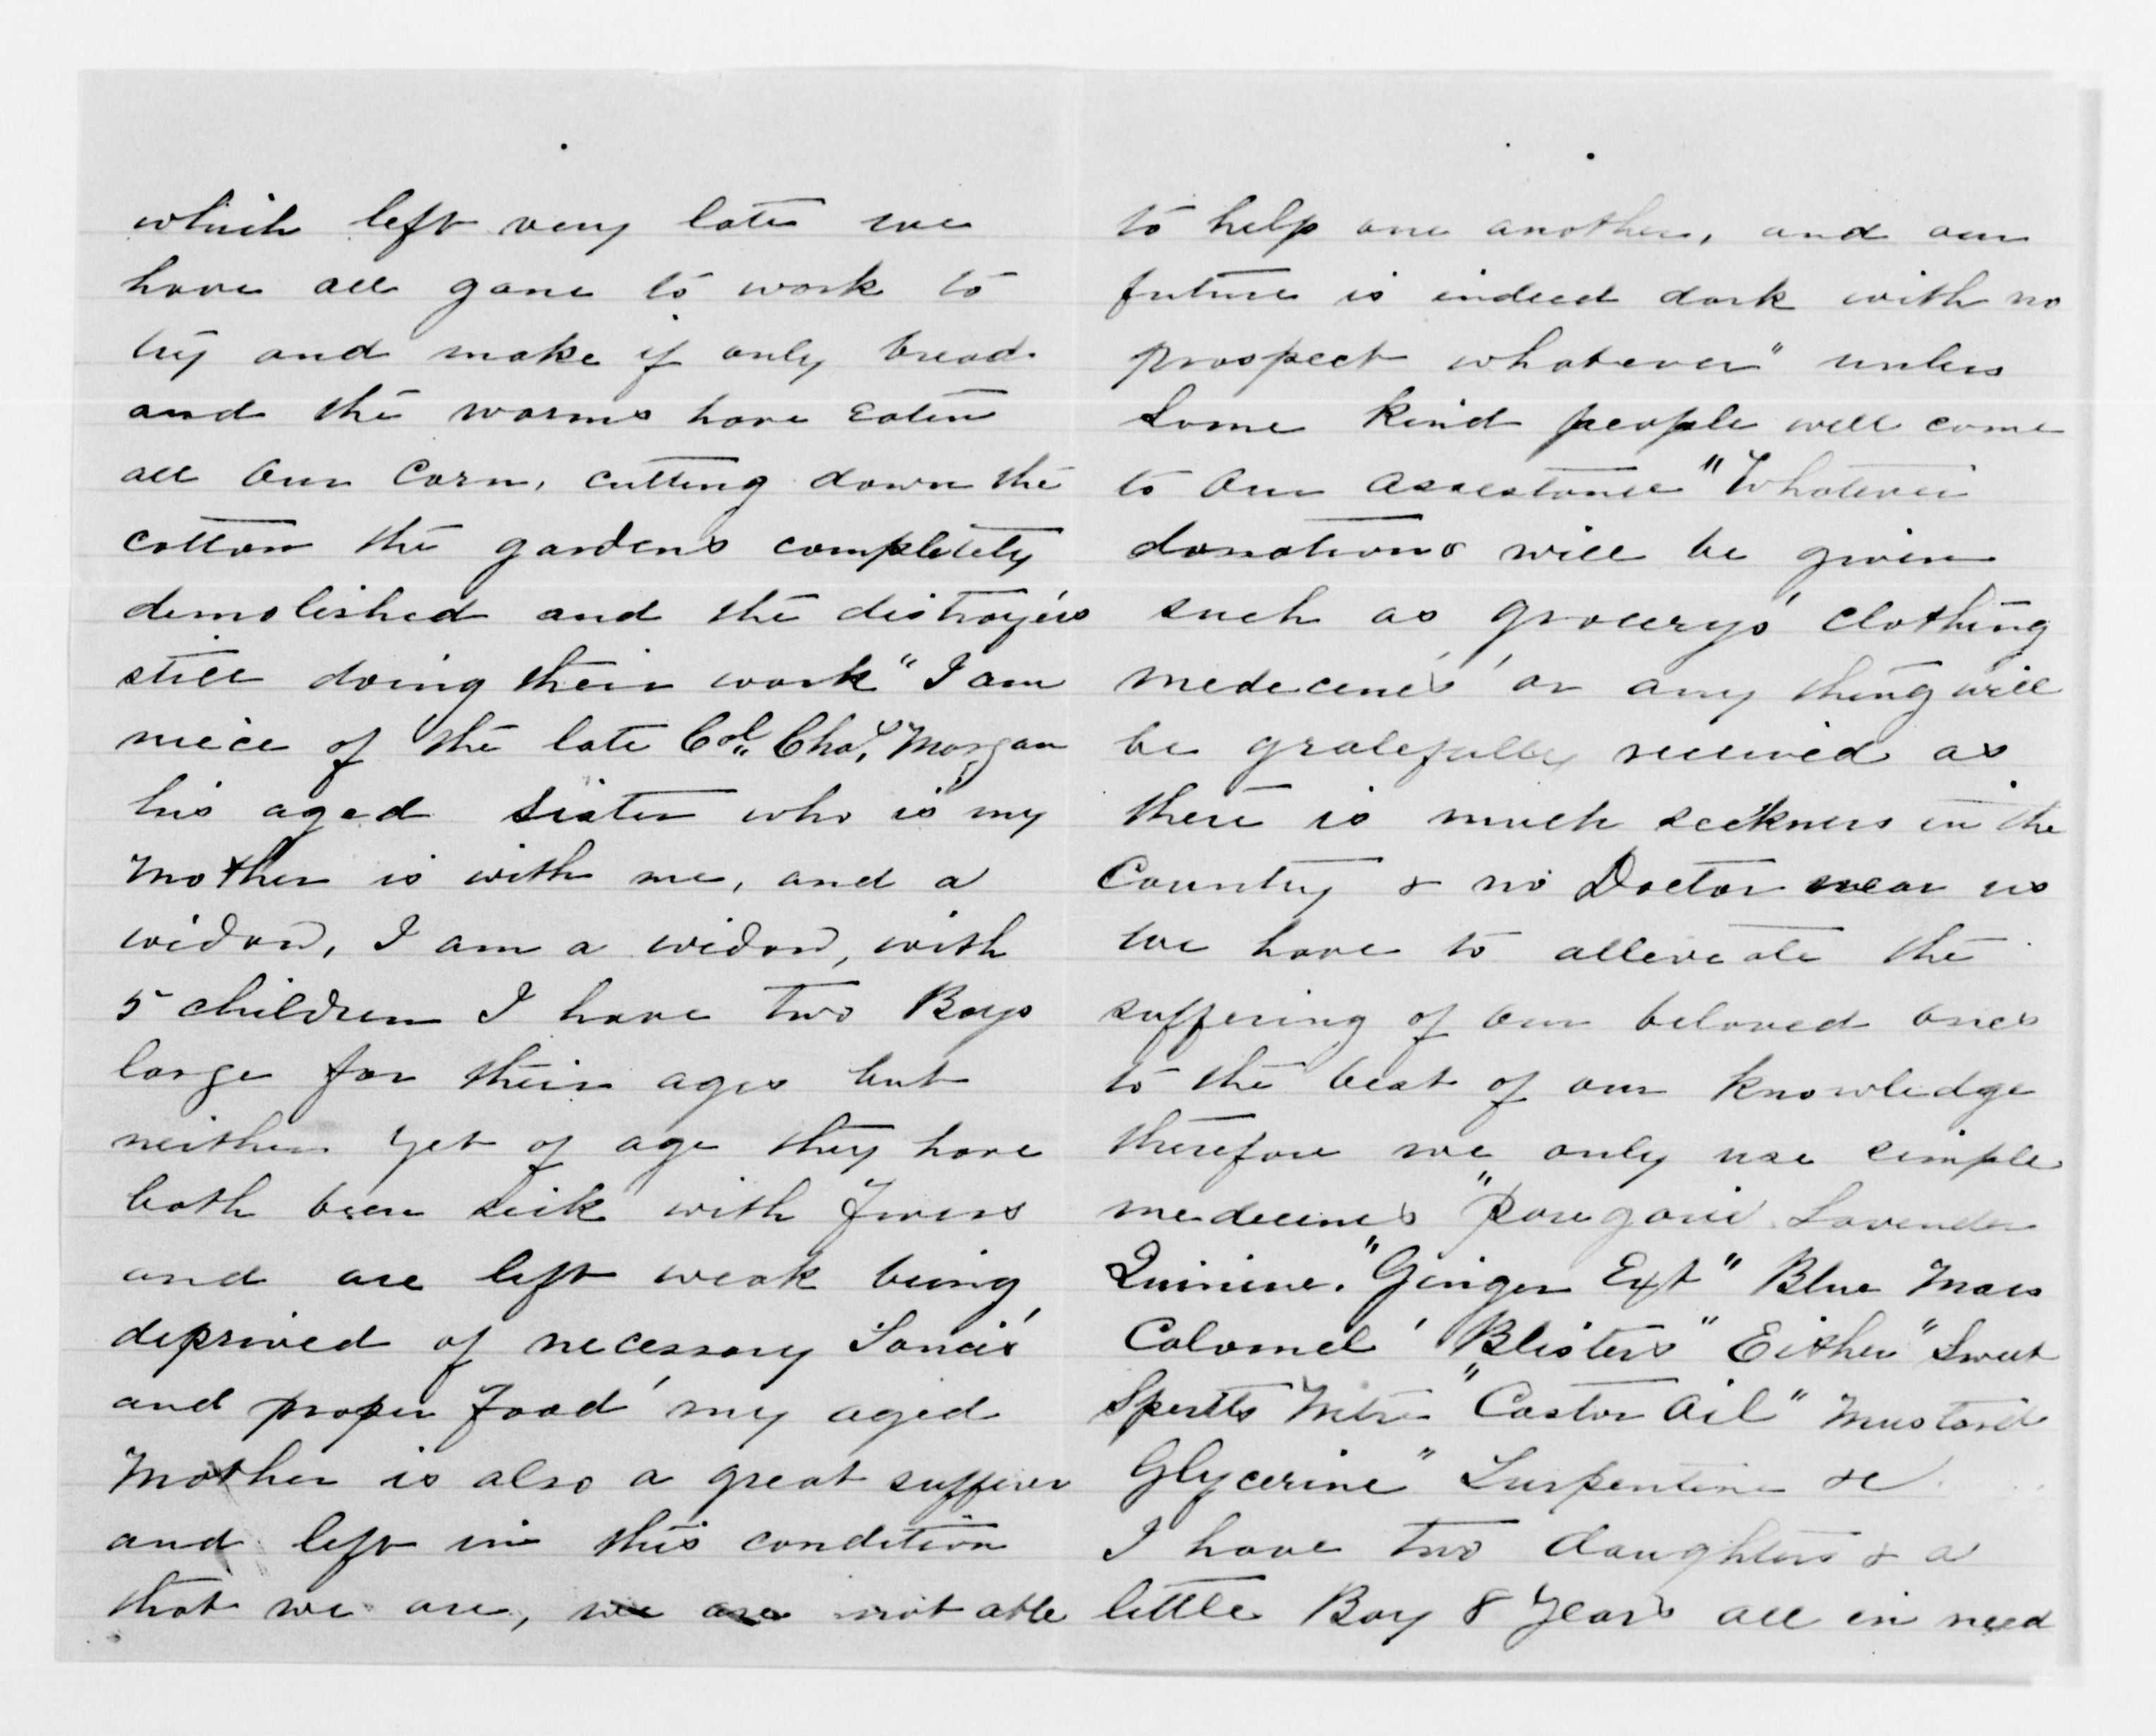 which left very late we
have all gone to work to
try and make if only bread
and the worms have Eaten
all our Corn, cutting down the
cotton the gardens completely
demolished and the distroyers
still doing their work" I am
niece of the late Col" Chas, Morgan
his aged sister who is my
Mother is with me, and a
widow, I am a widow, with
5 children I have two Boys
large for their ages but
neither yet of age they have
both been sick with Fevers
and are left weak being
deprived of necessary Tonics
and proper food' my aged
Mother is also a great sufferer
and left in this condition
that we are, we are not able
to help one another, and our
future is indeed dark with no
prospect whatever" unless
some kind people will come
to our assestance" Whatever
donations will be given
such as grocerys' clothing
medecene's' or any thing will
be gratefully received as
there is much seekness in the
Country & no Doctor near us
we have to alleveate the
suffering of our beloved ones
to the best of our knowledge
therefore we only use simple
medecines "Paregoric Lavender
Quinine. "Ginger Ext" Blue Mass
Calomel' Blisters" Either" Sweet
Sperits Nitre "Castor Oil" Mustard
Glycerine" Turpentine &c
I have two daughters & a
little Boy 8 years all in need